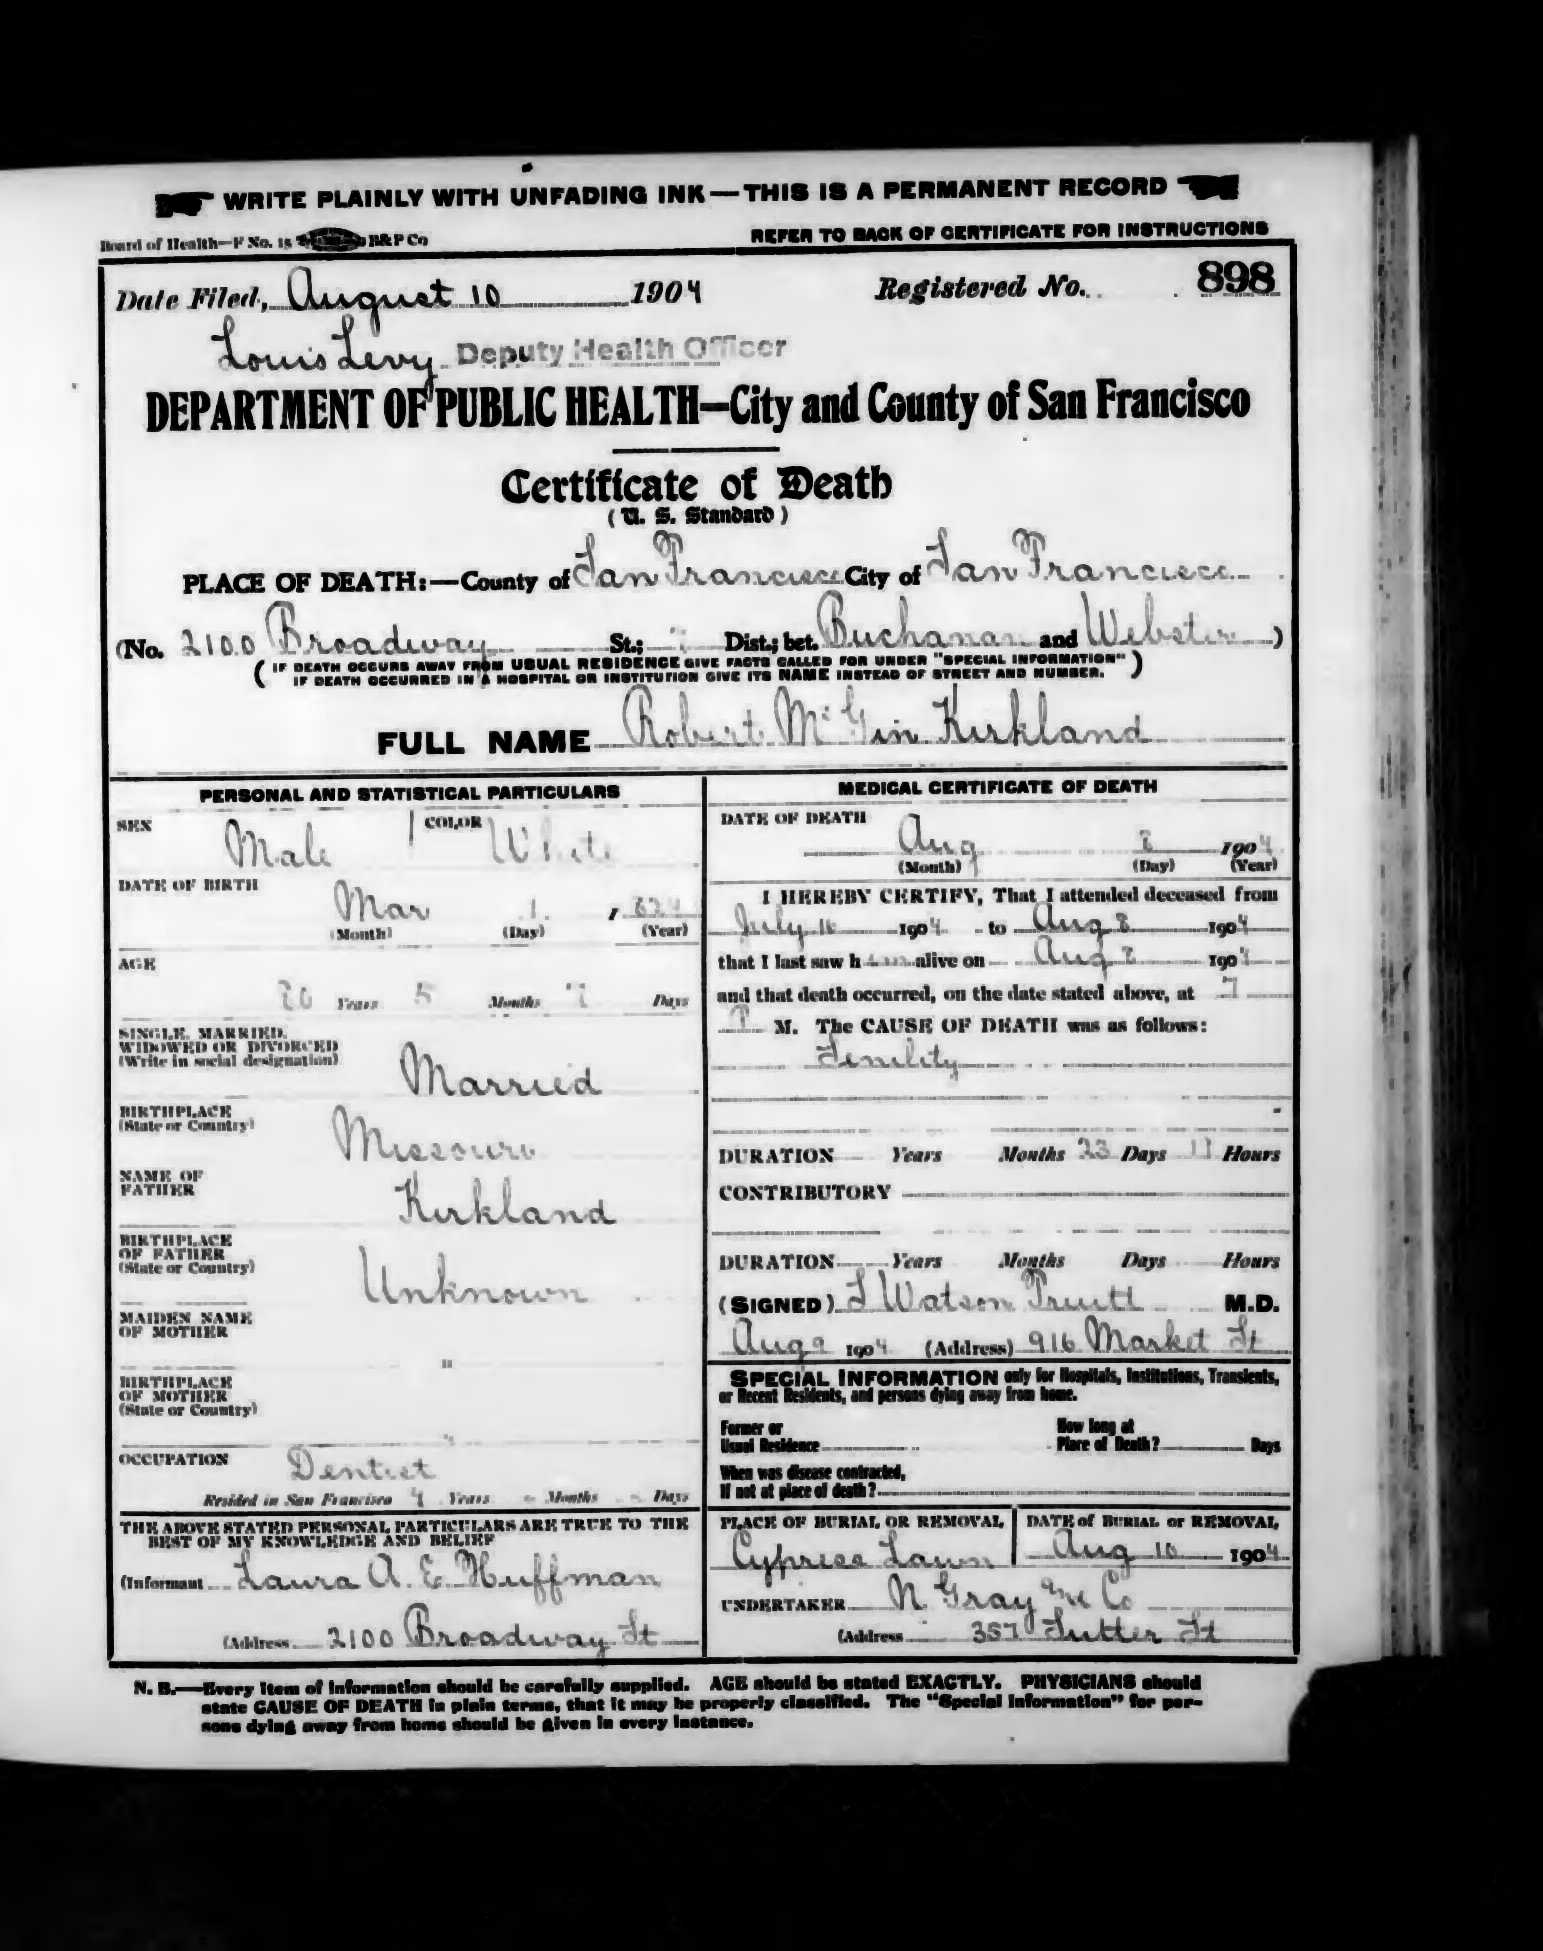 WRITE PLAINLY WITH UNFADING INK—THIS IS A PERMANENT RECORD
Board of Health—F No. 15 B&P Co
REFER TO BACK OF CERTIFICATE FOR INSTRUCTIONS
Date Filed, August 10 1904 Registered No. 898
Louis Levy Deputy Health Officer
DEPARTMENT OF PUBLIC HEALTH—City and County of San Francisco
Certificate of Death
( U. S. Standard )
PLACE OF DEATH:—County of San Francisco City of San Francisco
(No. 2100 Broadway St.; Dist.; bet. Buchanan and Webster )
( IF DEATH OCCURS AWAY FROM USUAL RESIDENCE GIVE FACTS CALLED FOR UNDER "SPECIAL INFORMATION" )
IF DEATH OCCURRED IN A HOSPITAL OR INSTITUTION GIVE ITS NAME INSTEAD OF STREET AND NUMBER.
FULL NAME Robert McGin Kirkland
PERSONAL AND STATISTICAL PARTICULARS
SEX Male COLOR White
DATE OF BIRTH
Mar 1 , 824
(Month) (Day) (Year)
AGE
80 Years 5 Months 7 Days
SINGLE, MARRIED,
WIDOWED OR DIVORCED
(Write in social designation)
Married
BIRTHPLACE
(State or Country)
Missouri
NAME OF
FATHER
Kirkland
BIRTHPLACE
OF FATHER
(State or Country)
Unknown
MAIDEN NAME
OF MOTHER
"
BIRTHPLACE
OF MOTHER
(State or Country)
"
OCCUPATION Dentist
Resided in San Francisco 4 Years - Months - Days
THE ABOVE STATED PERSONAL PARTICULARS ARE TRUE TO THE
BEST OF MY KNOWLEDGE AND BELIEF
(Informant Laura A. E. Huffman
(Address 2100 Broadway St
MEDICAL CERTIFICATE OF DEATH
DATE OF DEATH
Aug 8 1904
(Month) (Day) (Year)
I HEREBY CERTIFY, That I attended deceased from
July 16 1904 to Aug 8 1904
that I last saw him alive on Aug 8 1904
and that death occurred, on the date stated above, at 7
P M. The CAUSE OF DEATH was as follows:
Senility
DURATION Years Months 23 Days 11 Hours
CONTRIBUTORY
DURATION Years Months Days Hours
(SIGNED) S Watson Pruitt M.D.
Aug 9 1904 (Address) 916 Market St
SPECIAL INFORMATION only for Hospitals, Institutions, Transients,
or Recent Residents, and persons dying away from home.
Former or
Usual Residence
How long at
Place of Death? Days
When was disease contracted,
If not at place of death?
PLACE OF BURIAL OR REMOVAL
Cypress Lawn
DATE of BURIAL or REMOVAL
Aug 10 1904
UNDERTAKER N. Gray and Co
(Address 357 Sutter St
N. B.—Every item of information should be carefully supplied. AGE should be stated EXACTLY. PHYSICIANS should
state CAUSE OF DEATH in plain terms, that it may be properly classified. The "Special Information" for per-
sons dying away from home should be given in every instance.